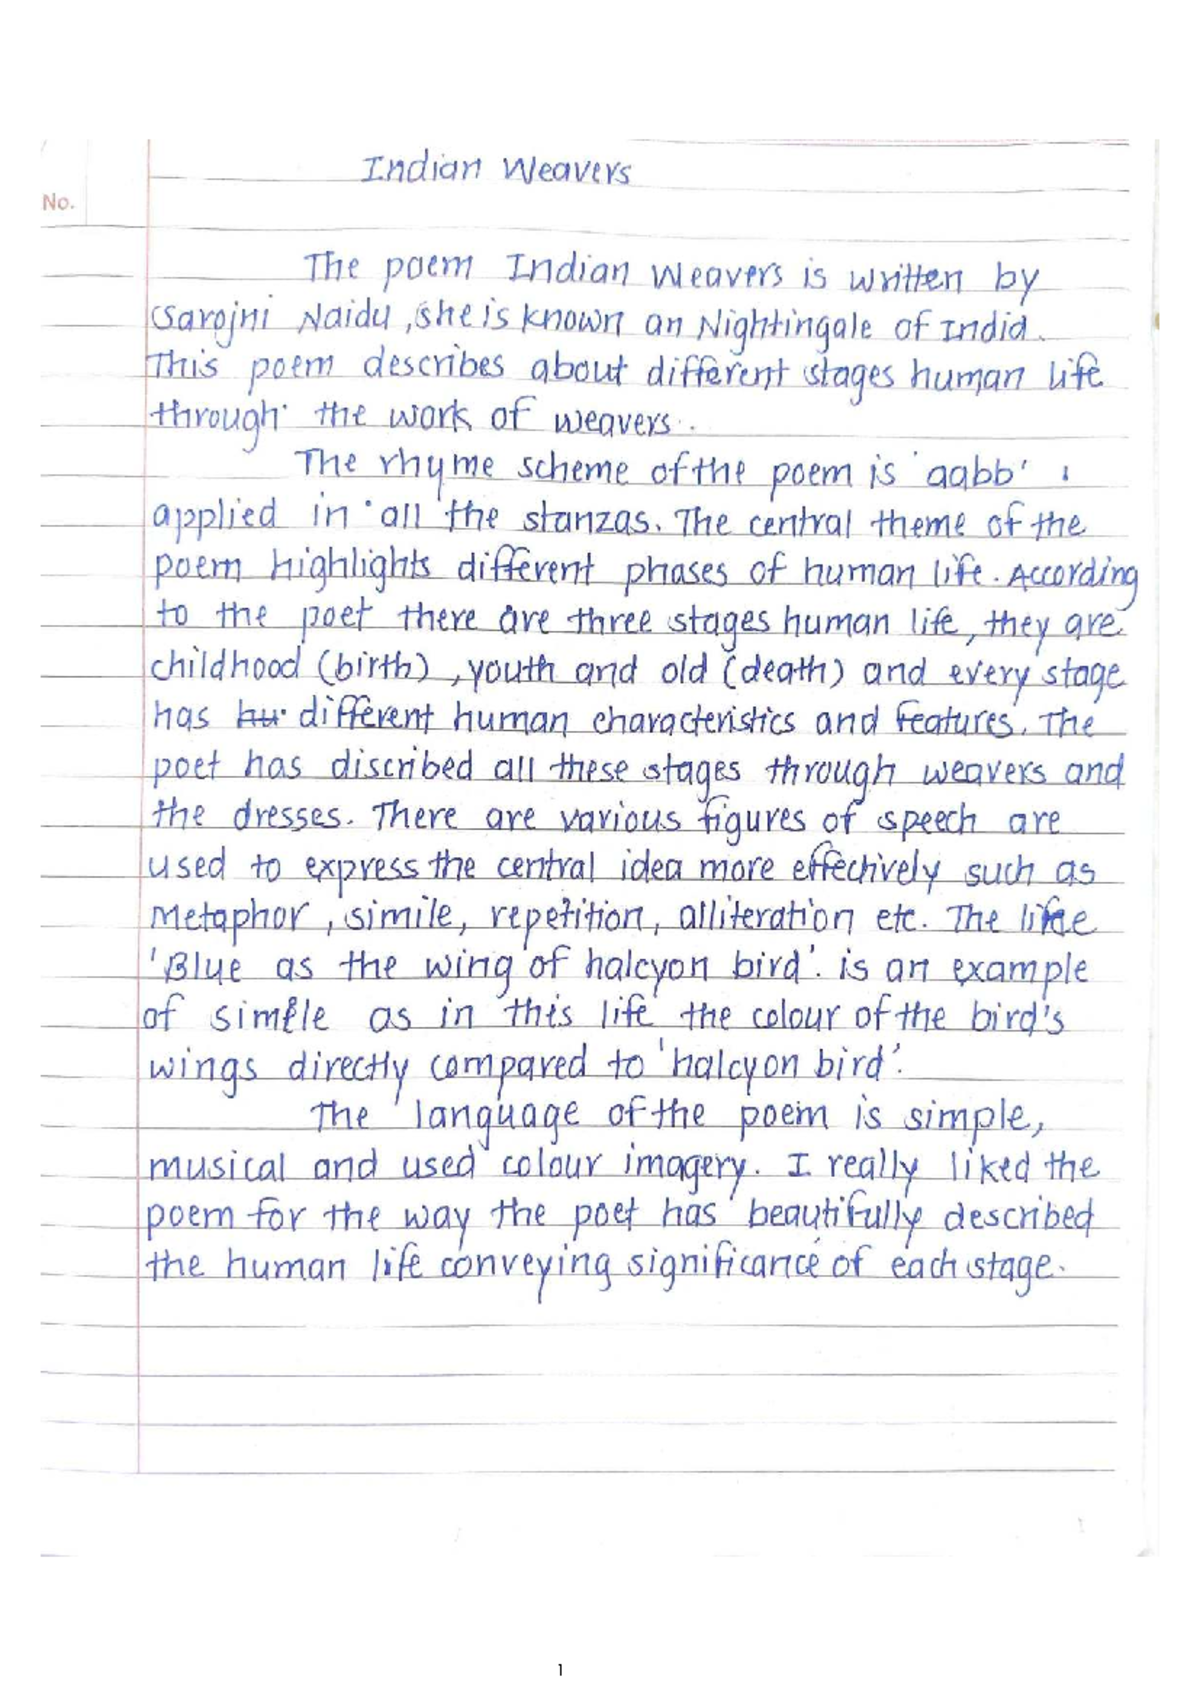 Indian Weavers
No.
The poem Indian Weavers is written by
Sarojni Naidu, she is known an Nightingale of India.
This poem describes about different stages human life
through the work of weavers.
The rhyme scheme of the poem is 'aabb'
applied in all the stanzas. The central theme of the
poem highlights different phases of human life. According
to the poet there are three stages human life, they are
childhood (birth), youth and old (death) and every stage
has different human characteristics and features. The
poet has discribed all these stages through weavers and
the dresses. There are various figures of speech are
used to express the central idea more effectively such as
Metaphor, simile, repetition, alliteration etc. The
'Blue as the wing of halcyon bird'. is an example
of simile as in this life the colour of the bird's
wings directly compared to 'halcyon bird'.
The language of the poem is simple,
musical and used colour imagery. I really liked the
poem for the way the poet has beautifully described
the human life conveying significance of each stage.
1